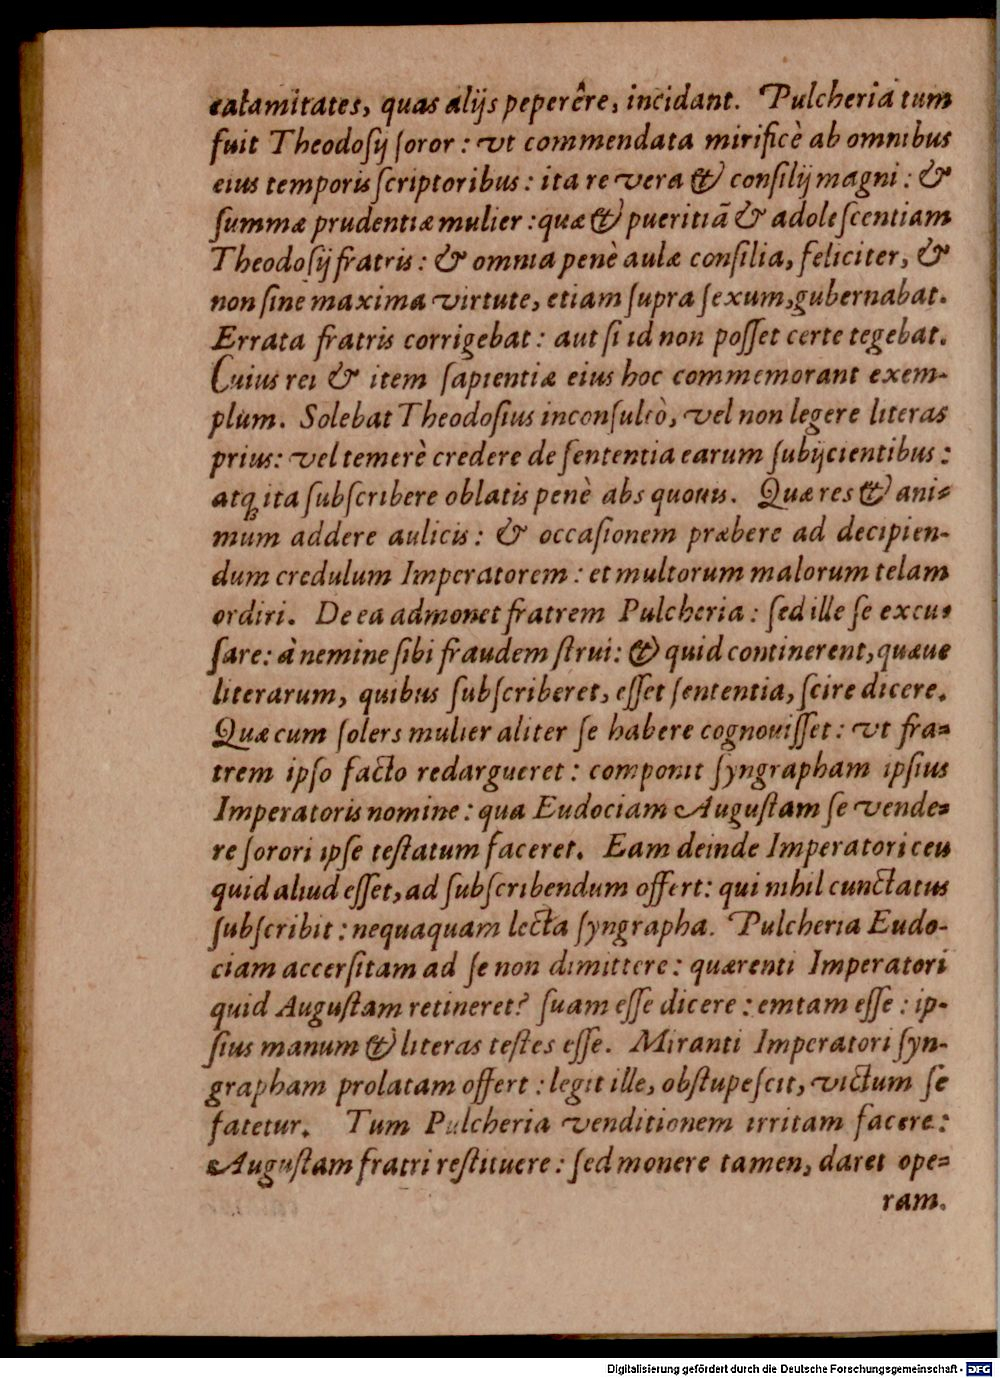 calamitates, quas alijs peperêre, incidant. Pulcheria tum
fuit Theodoſij ſoror: vt commendata mirificè ab omnibus
eius temporis ſcriptoribus: ita re vera & conſilij magni: &
ſummæ prudentiæ mulier: quæ & pueritiã & adoleſcentiam
Theodoſij fratris: & omnia penè aulæ conſilia, feliciter, &
non ſine maxima virtute, etiam ſupra ſexum, gubernabat.
Errata fratris corrigebat: aut ſi id non poſſet certe tegebat.
Cuius rei & item ſapientiæ eius hoc commemorant exem-
plum. Solebat Theodoſius inconſultò, vel non legere literas
prius: vel temerè credere de ſententia earum ſubijcientibus:
atqꝫ ita ſubſcribere oblatis penè abs quouis. Quæ res & ani-
mum addere aulicis: & occaſionem præbere ad decipien-
dum credulum Imperatorem: et multorum malorum telam
ordiri. De ea admonet fratrem Pulcheria: ſed ille ſe excu-
ſare: à nemine ſibi fraudem ſtrui: & quid continerent, quæue
literarum, quibus ſubſcriberet, eſſet ſententia, ſcire dicere.
Quæ cum ſolers mulier aliter ſe habere cognouiſſet: vt fra-
trem ipſo facto redargueret: componit ſyngrapham ipſius
Imperatoris nomine: qua Eudociam Auguſtam ſe vende-
re ſorori ipſe teſtatum faceret. Eam deinde Imperatori ceu
quid aliud eſſet, ad ſubſcribendum offert: qui nihil cunctatus
ſubſcribit: nequaquam lecta ſyngrapha. Pulcheria Eudo-
ciam accerſitam ad ſe non dimittere: quærenti Imperatori
quid Auguſtam retineret? ſuam eſſe dicere: emtam eſſe: ip-
ſius manum & literas teſtes eſſe. Miranti Imperatori ſyn-
grapham prolatam offert: legit ille, obſtupeſcit, victum ſe
fatetur. Tum Pulcheria venditionem irritam facere:
Auguſtam fratri reſtituere: ſed monere tamen, daret ope-
ram.
Digitalisierung gefördert durch die Deutsche Forschungsgemeinschaft - DFG